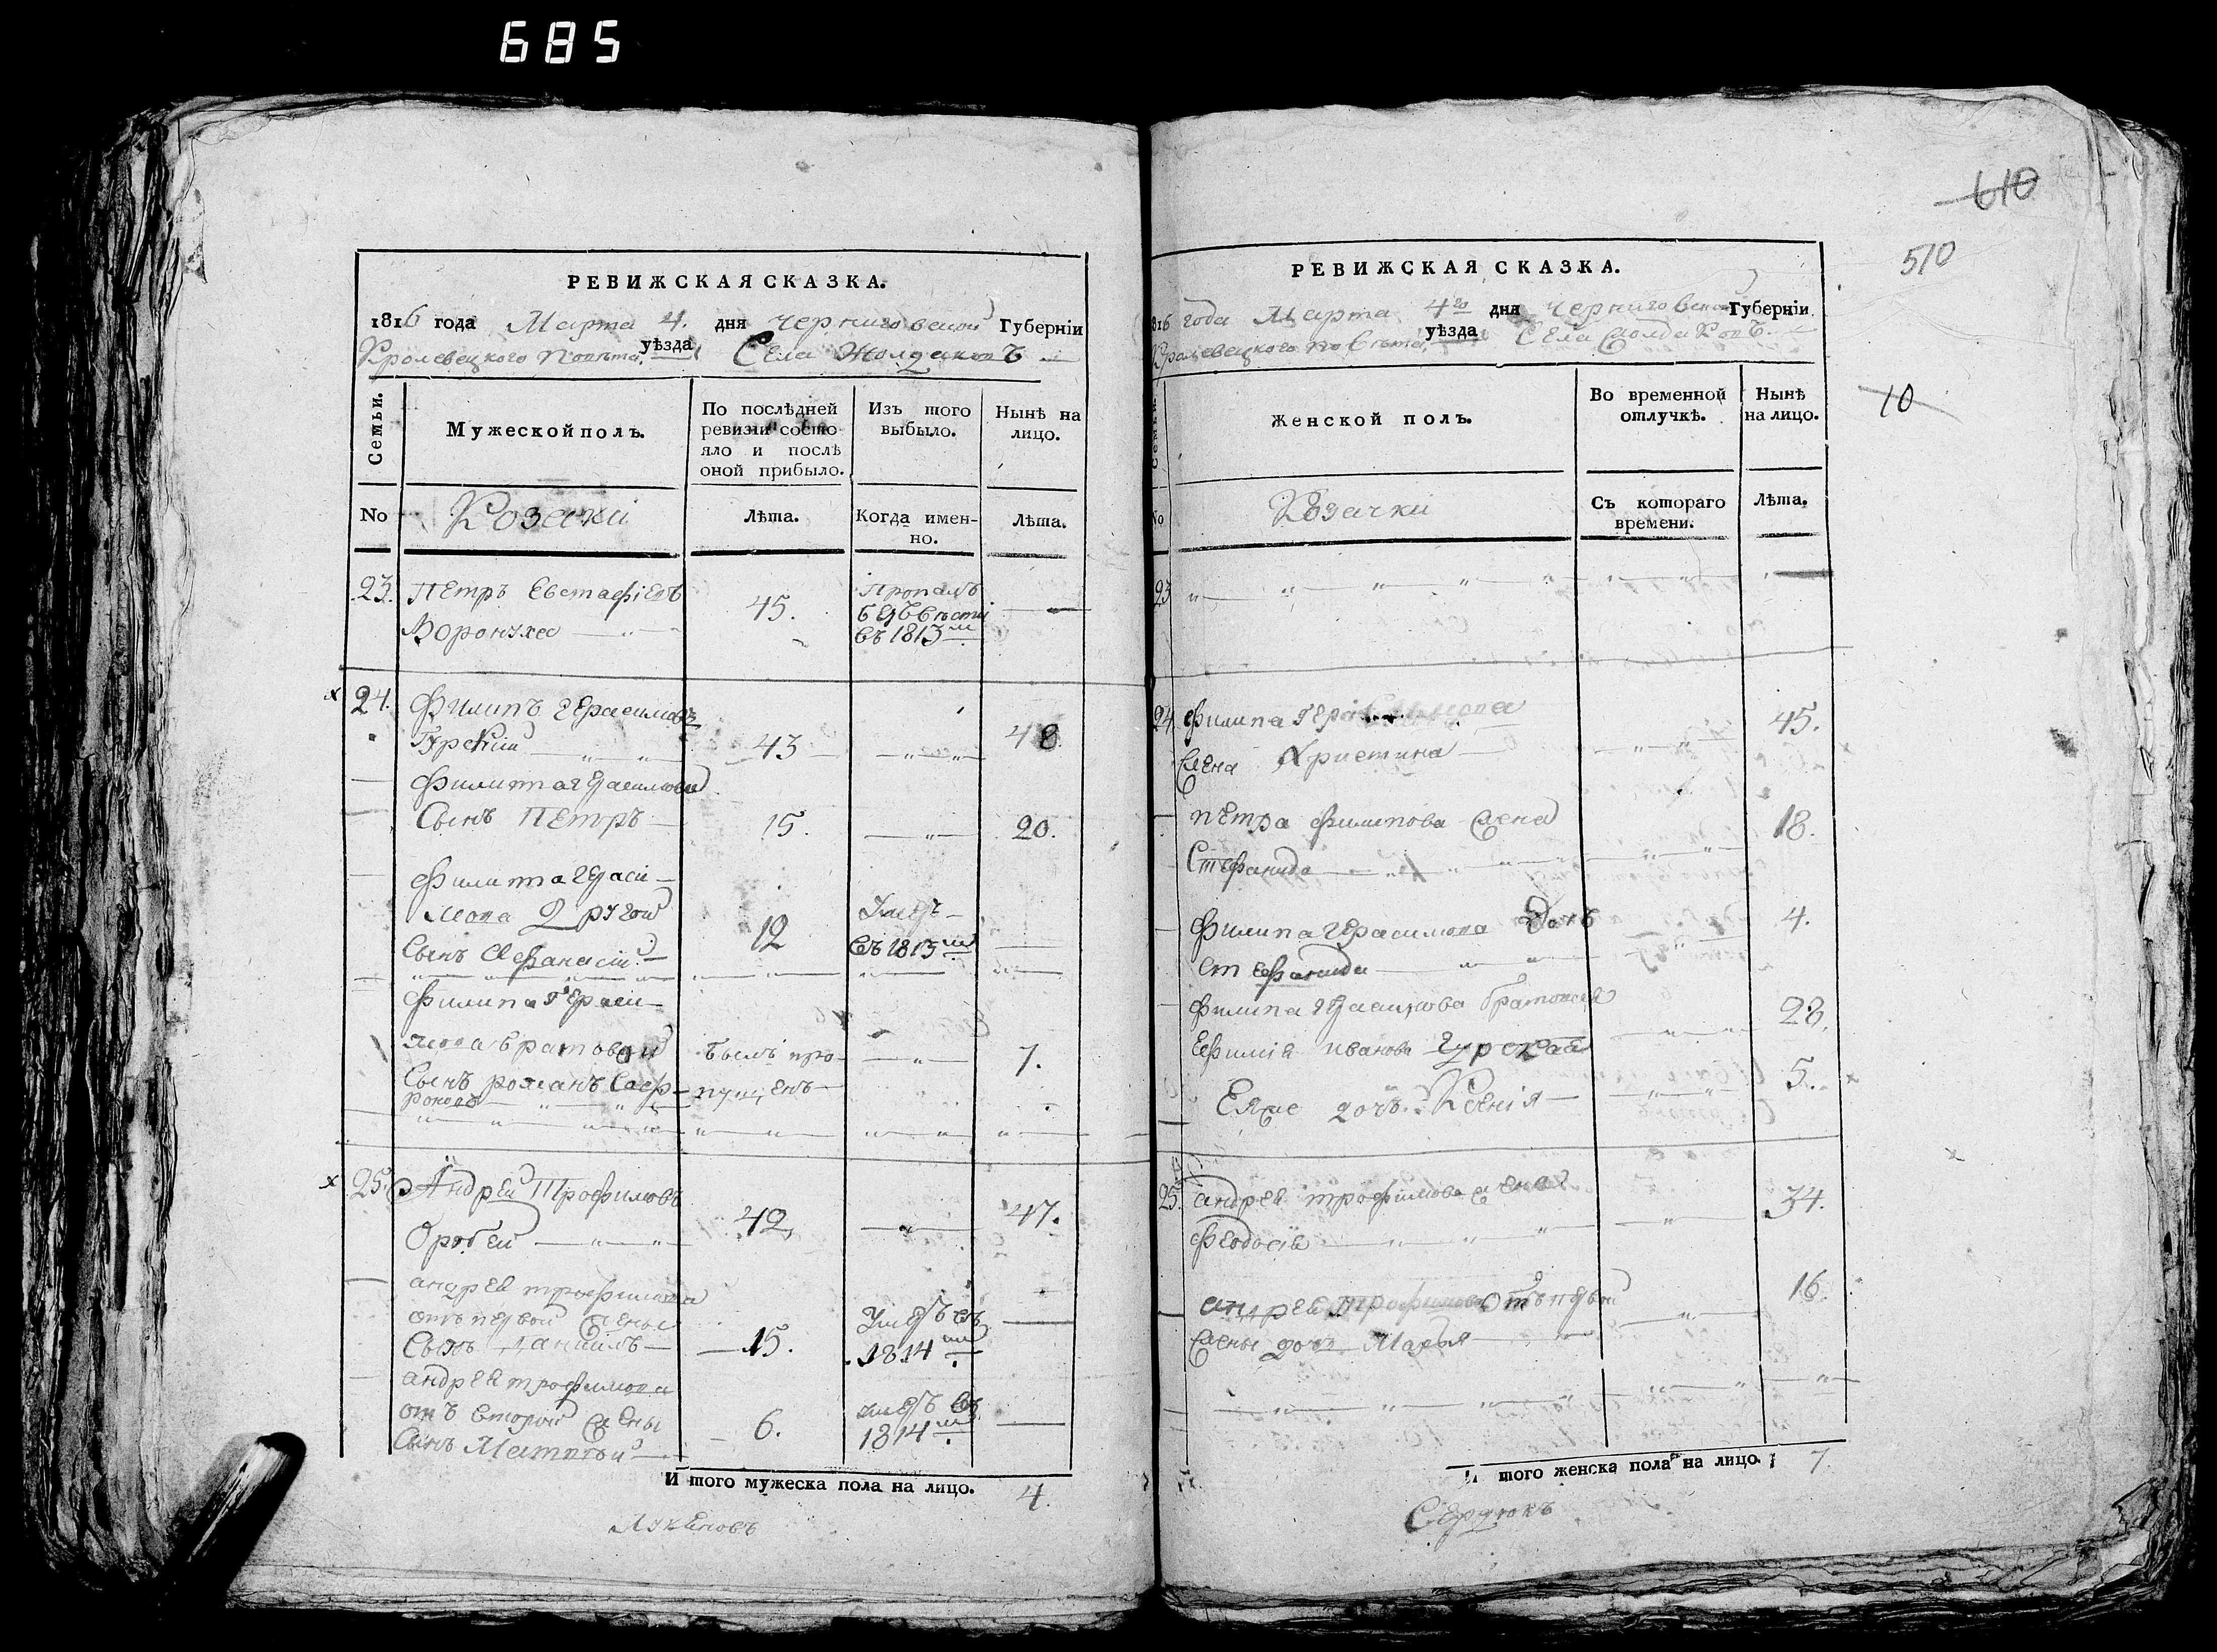 685
РЕВИЖСКАЯ СКАЗКА.
1816 года Марта 4. дня Черниговской Губерніи
Кролевецкого Повѣта уѣзда Села Жолдаковъ
Семьи.
Мужеской полъ.
По послѣдней ревизіи состо
яло и послѣ
оной прибыло.
Изъ того выбыло.
Нынѣ на лицо.
No
Козаки
Лѣта.
Когда имен-
но.
Лѣта.
23. Петръ Евстафіевъ
45.
Пропалъ
безъ вѣсти
въ 1813м
24. Филипъ Герасимовъ
Гурскій
43
48
Филипа Герасимова
Сынъ Петръ
15.
20.
Филипа Гераси
мова другой
Сынъ Афанасій
12
Умеръ
въ 1813м
Филипа Гераси
мова братовой
Сынъ романъ Саф
роновъ
былъ про
пущенъ
7.
25. Андрей Трофимовъ
Оробей
42
47.
андрея трофимова
отъ первой жены
Сынъ даніилъ
15.
Умеръ въ
1814м
андрея трофимова
отъ второй жены
Сынъ Матвѣй
6.
умеръ въ
1814м
И того мужеска пола на лицо. 4.
610
510
10
РЕВИЖСКАЯ СКАЗКА.
1816 года Марта 4го дня Черниговской Губерніи
Кролевецкого повѣта уѣзда Села Жолдаковъ
Семьи.
Женской полъ.
Во временной
отлучкѣ.
Нынѣ
на лицо.
No
Козачки
Съ котораго
времени.
Лѣта.
23
24 Филипа Герасимова
жена Христина
45.
петра филипова жена
Стефанида
18.
Филипа Герасимова дочь
стефанида
4.
Филипа Герасимова
Ефимія иванова гурская
28.
Ея же дочь Ксенія
5.
25. андрея трофимова жена
Феодосія
34.
андрея трофимова отъ первой
жены дочь Марья
16.
И того женска пола на лицо. 7.
Сердюкъ